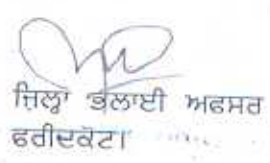 ਜ਼ਿਲ੍ਹਾ ਭਲਾਈ ਅਫਸਰ
ਫਰੀਦਕੋਟ।